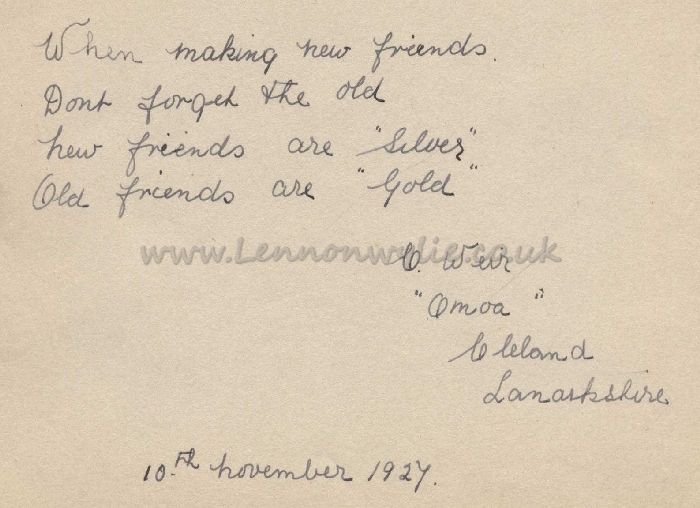 When making new friends.
Dont forget the old
new friends are "Silver"
Old friends are "Gold"
www.Lennonwylie.co.uk
C. Weir
"Omoa"
Cleland
Lanarkshire
10.th november 1927.